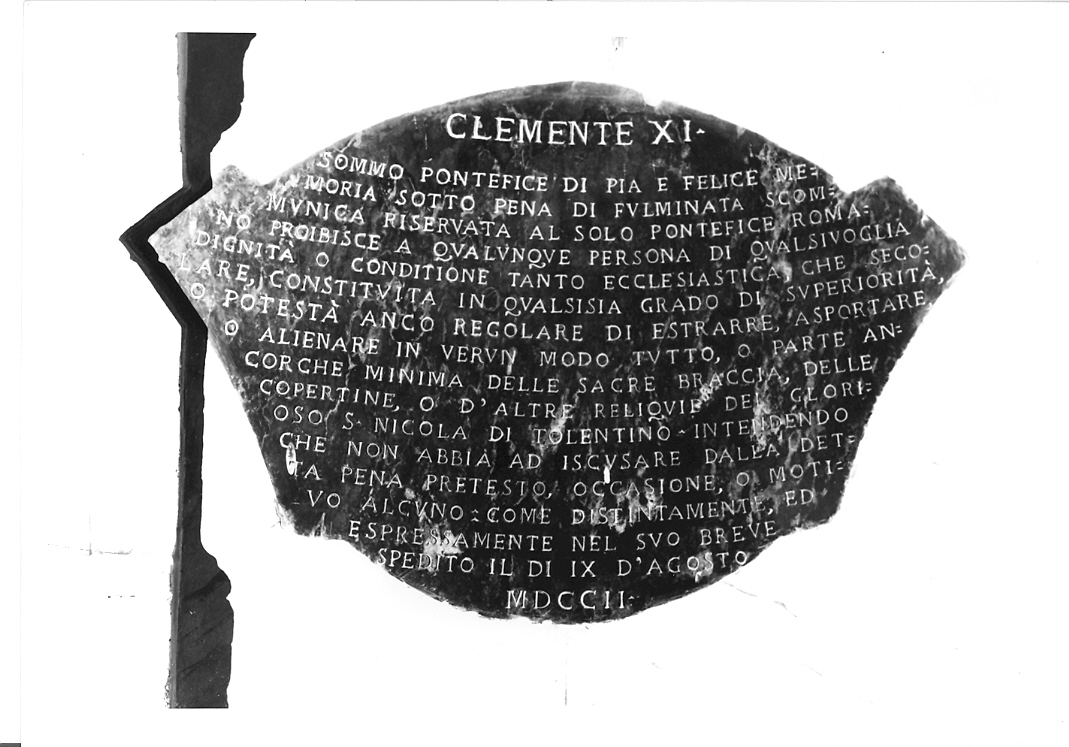 CLEMENTE XI·
SOMMO PONTEFICE DI PIA E FELICE ME=
MORIA SOTTO PENA DI FVLMINATA SCOM=
MVNICA RISERVATA AL SOLO PONTEFICE ROMA=
NO PROIBISCE A QVALVNQVE PERSONA DI QVALSIVOGLIA
DIGNITÀ O CONDITIONE TANTO ECCLESIASTICA, CHE SECO=
LARE, CONSTITVITA IN QVALSISIA GRADO DI SVPERIORITÀ,
O POTESTÀ ANCO REGOLARE DI ESTRARRE, ASPORTARE,
O ALIENARE IN VERVN MODO TVTTO, O PARTE AN=
CORCHE MINIMA DELLE SACRE BRACCIA, DELLE
COPERTINE, O D'ALTRE RELIQVIE DEL GLORI=
OSO S· NICOLA DI TOLENTINO· INTENDENDO
CHE NON ABBIA AD ISCVSARE DALLA DET=
TA PENA PRETESTO, OCCASIONE, O MOTI=
VO ALCVNO: COME DISTINTAMENTE, ED
ESPRESSAMENTE NEL SVO BREVE
SPEDITO IL DI IX D'AGOSTO
MDCCII·